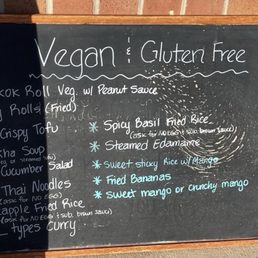 Vegan & Gluten Free
kok Roll Veg. w/ Peanut Sauce
y Rolls (Fried)
Crispy Tofu
kha Soup
Cucumber Salad
Thai Noodles
(ASK for NO EGGS)
eapple Fried Rice
(ASK for NO EGGS & sub. brown sauce)
types curry
* Spicy Basil Fried Rice
(ask for NO EGGS & sub. brown sauce)
* Steamed Edamame
* sweet sticky Rice w/ Mango
* Fried Bananas
* sweet mango or crunchy mango